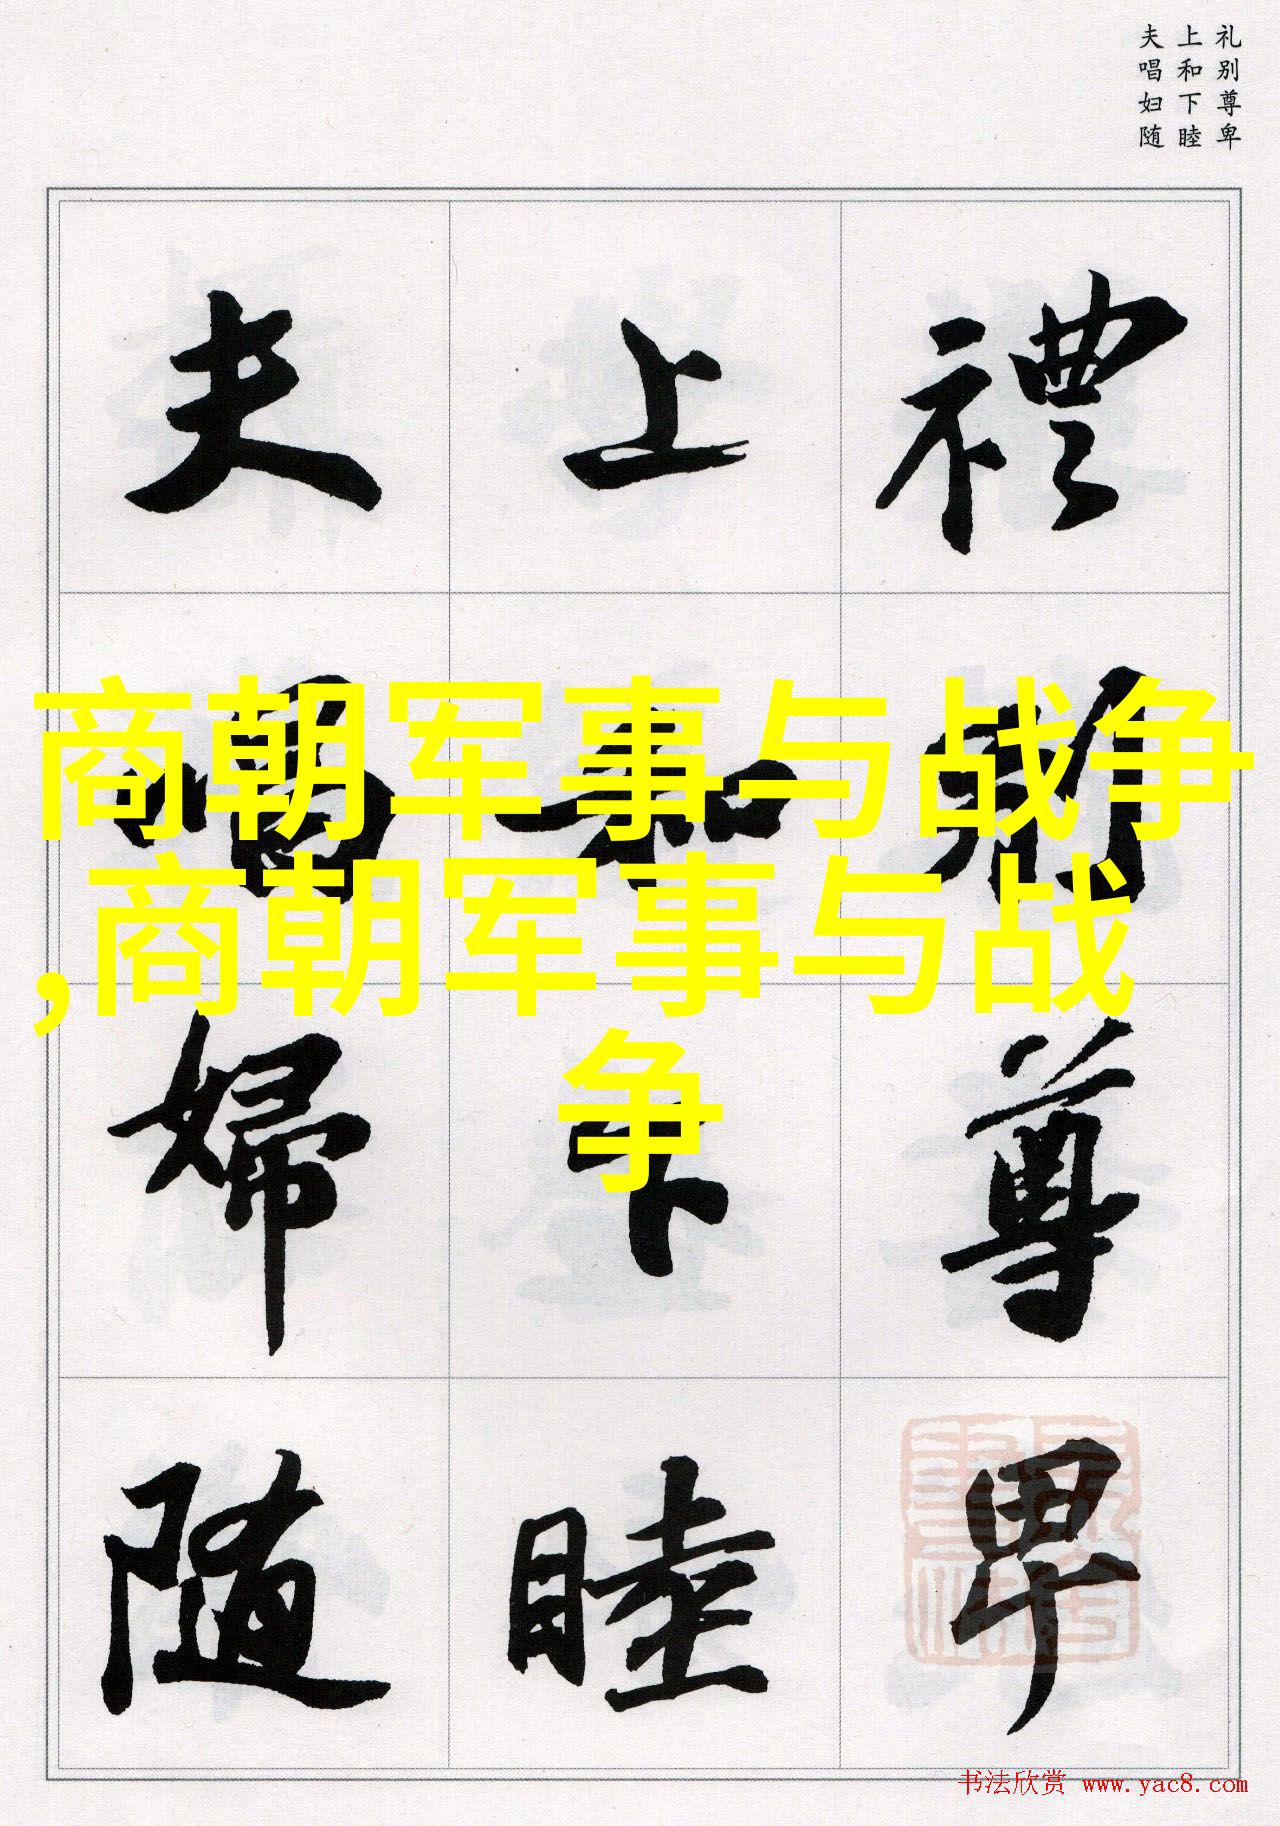 礼别尊卑
上和下睦
夫唱妇随
禮別尊卑
上和下睦
夫唱婦隨
商朝军事与战争
,商朝军事与战
争
书法欣赏 www.yac8.com